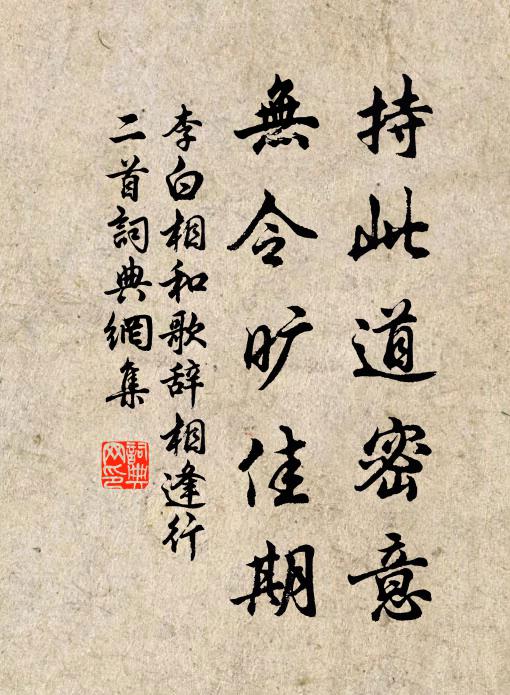 持此道密意
無令旷佳期
李白相和歌辞相逢行
二首詞典網集
詞典網印